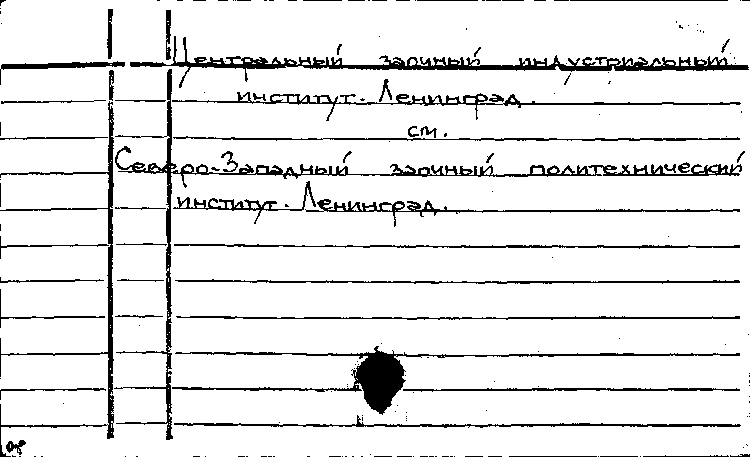 Центральный заочный индустриальный
институт. Ленинград.
см.
Северо-Западный заочный политехнический
институт. Ленинград.